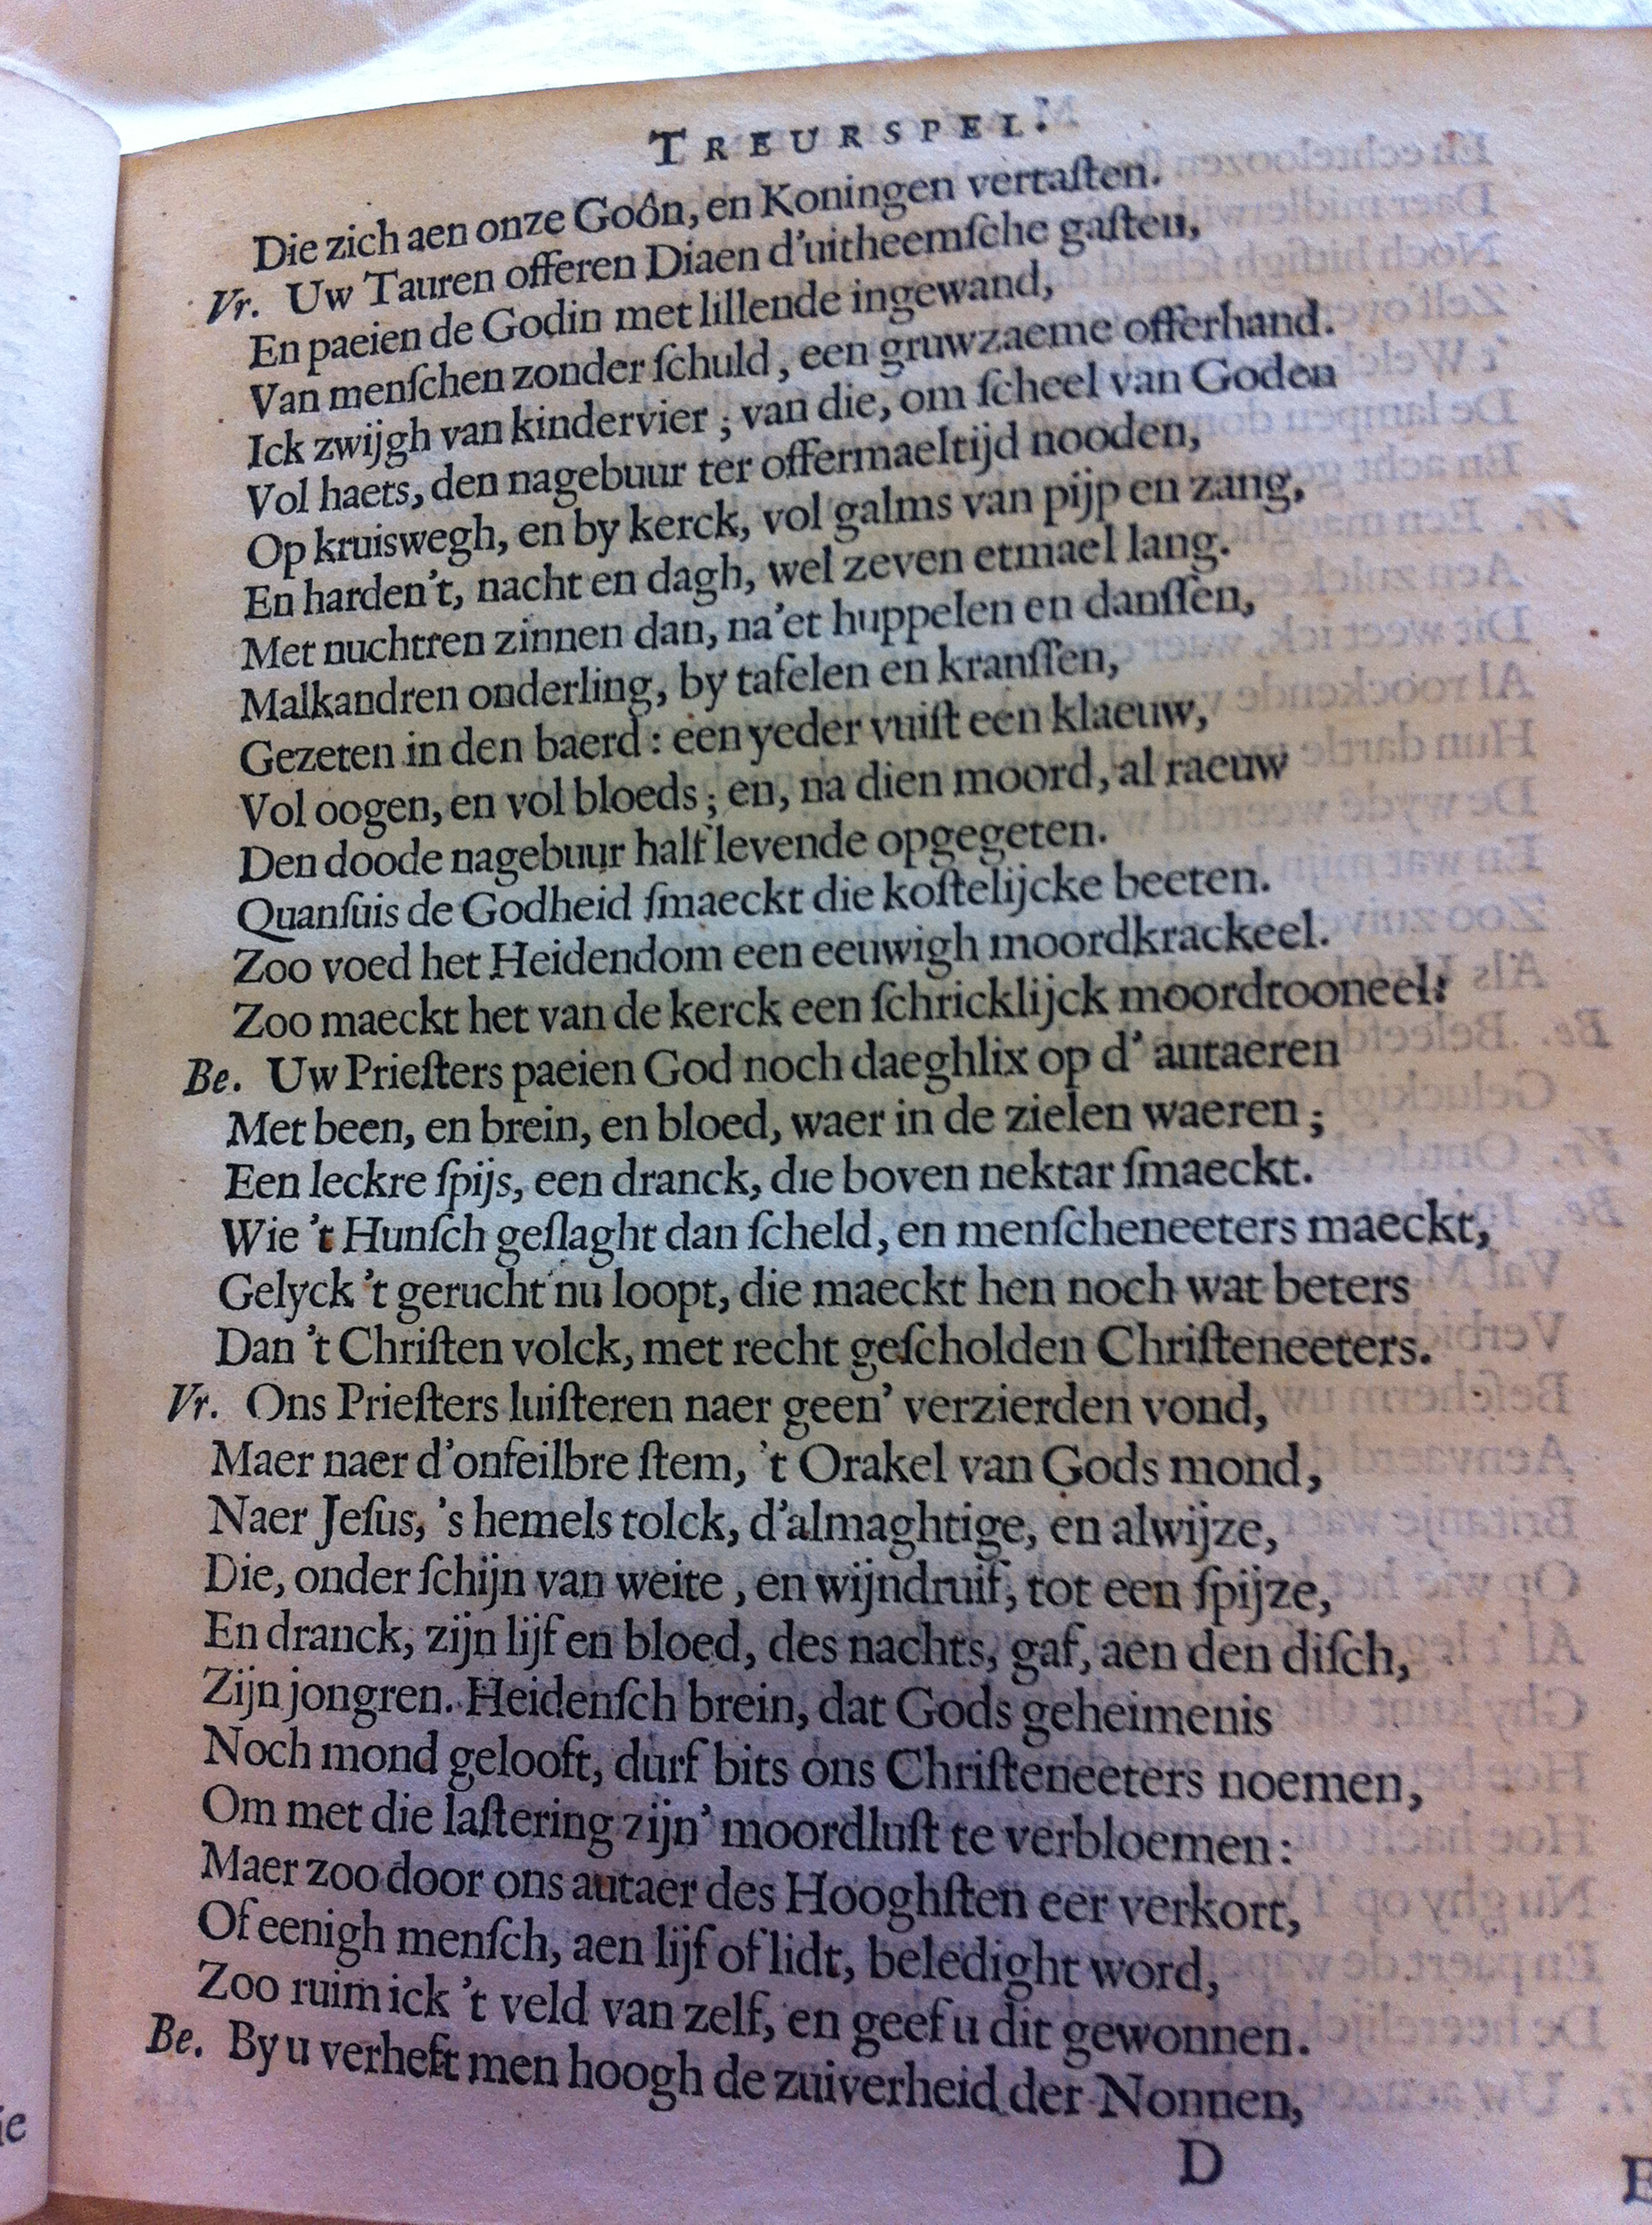 TREURSPEL.
Die zich aen onze Goôn, en Koningen vertaſten.
Vr. Uw Tauren offeren Diaen d'uitheemſche gaſten,
En paeien de Godin met lillende ingewand,
Van menſchen zonder ſchuld, een gruwzaeme offerhand.
Ick zwijgh van kindervier; van die, om ſcheel van Goden
Vol haets, den nagebuur ter offermaeltijd nooden,
Op kruiswegh, en by kerck, vol galms van pijp en zang,
En harden't, nacht en dagh, wel zeven etmael lang.
Met nuchtren zinnen dan, na'et huppelen en danſſen,
Malkandren onderling, by tafelen en kranſſen,
Gezeten in den baerd: een yeder vuiſt een klaeuw,
Vol oogen, en vol bloeds; en, na dien moord, al raeuw
Den doode nagebuur half levende opgegeten.
Quanſuis de Godheid ſmaeckt die koſtelijcke beeten.
Zoo voed het Heidendom een eeuwigh moordkrackeel.
Zoo maeckt het van de kerck een ſchricklijck moordtooneel!
Be. Uw Prieſters paeien God noch daeghlix op d' autaeren
Met been, en brein, en bloed, waer in de zielen waeren;
Een leckre ſpijs, een dranck, die boven nektar ſmaeckt.
Wie 't Hunſch geſlaght dan ſcheld, en menſcheneeters maeckt,
Gelyck 't gerucht nu loopt, die maeckt hen noch wat beters
Dan 't Chriſten volck, met recht geſcholden Chriſteneeters.
Vr. Ons Prieſters luiſteren naer geen' verzierden vond,
Maer naer d'onfeilbre ſtem, 't Orakel van Gods mond,
Naer Jeſus, 's hemels tolck, d'almaghtige, en alwijze,
Die, onder ſchijn van weite, en wijndruif, tot een ſpijze,
En dranck, zijn lijf en bloed, des nachts, gaf, aen den diſch,
Zijn jongren. Heidenſch brein, dat Gods geheimenis
Noch mond gelooft, durf bits ons Chriſteneeters noemen,
Om met die laſtering zijn' moordluſt te verbloemen:
Maer zoo door ons autaer des Hooghſten eer verkort,
Of eenigh menſch, aen lijf of lidt, beledight word,
Zoo ruim ick 't veld van zelf, en geef u dit gewonnen.
Be. By u verheft men hoogh de zuiverheid der Nonnen,
D